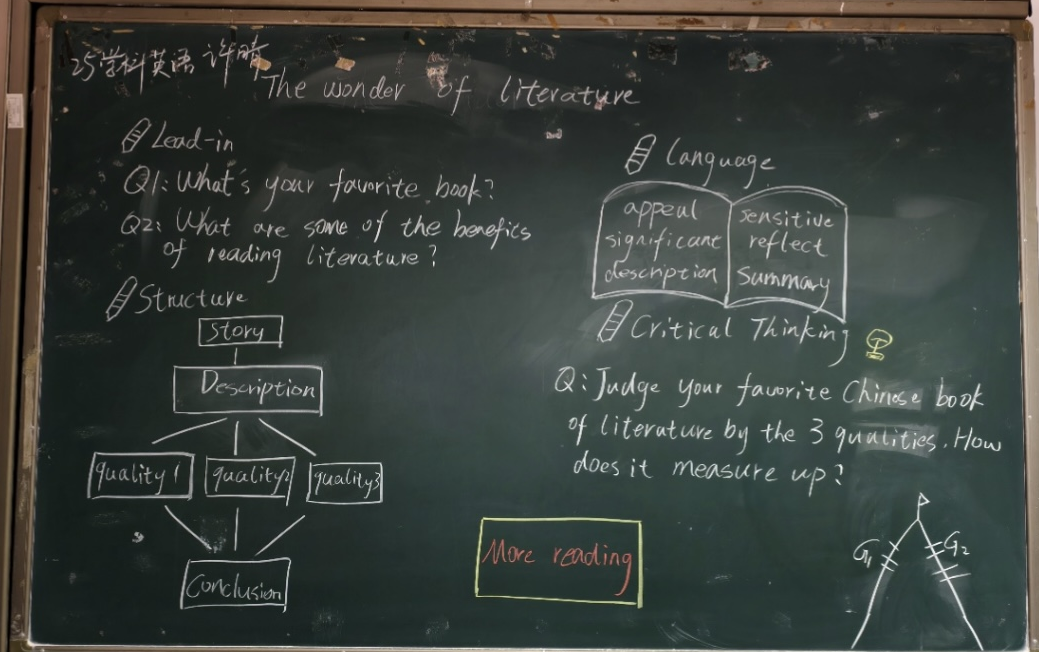 25学科英语 许晴
The wonder of literature
Lead-in
Q1: What's your favorite book?
Q2: What are some of the benefits
of reading literature?
Structure
Story
Description
quality1 quality2 quality3
Conclusion
Language
appeal
significant
description
sensitive
reflect
summary
Critical Thinking
Q: Judge your favorite Chinese book
of literature by the 3 qualities. How
does it measure up?
More reading
G1 G2